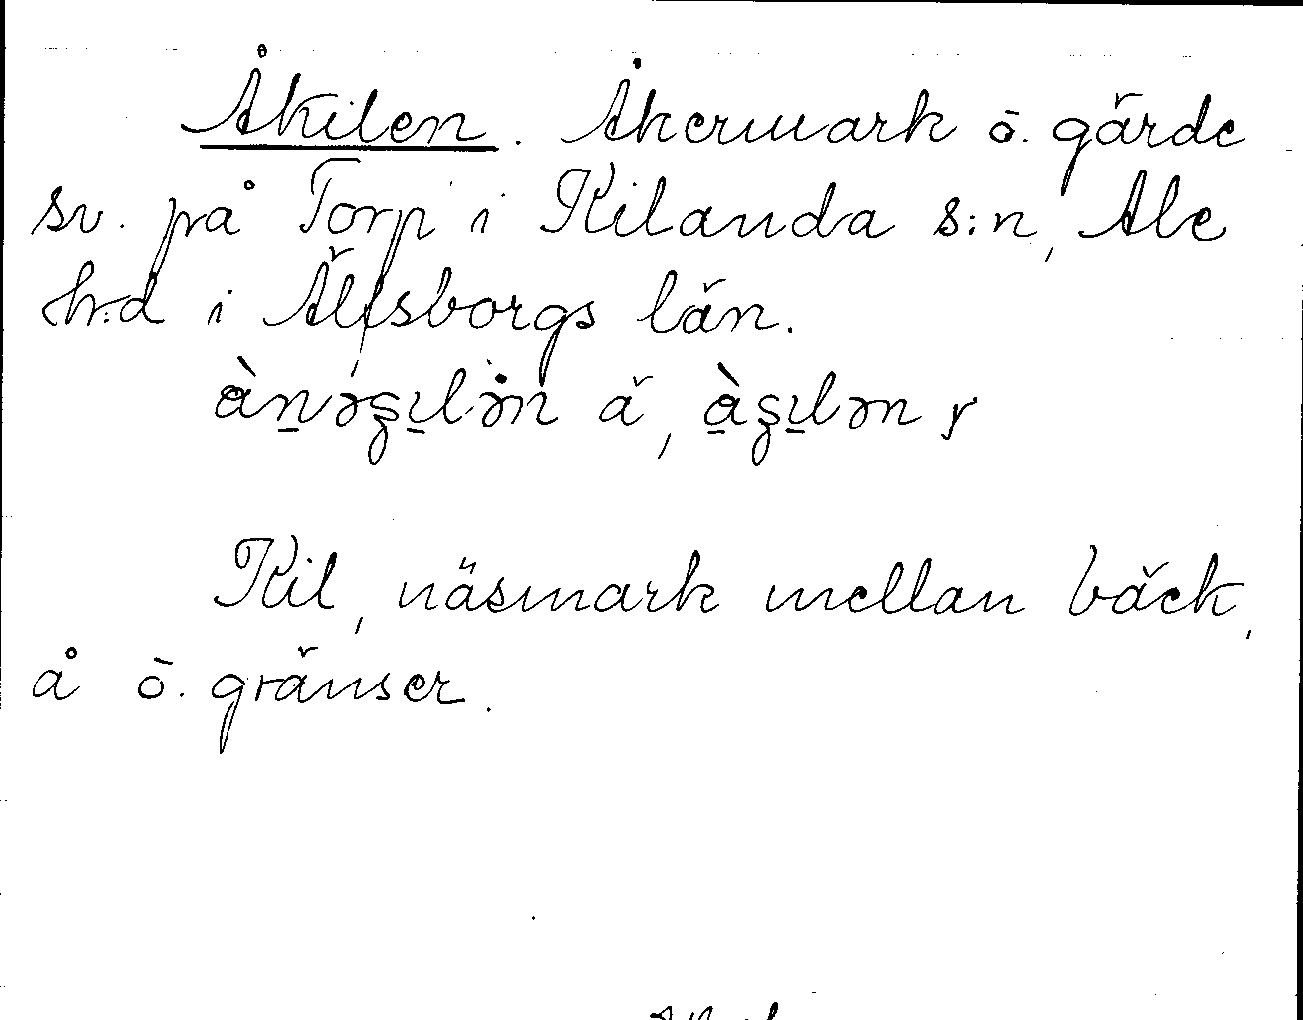 Åkilen. Åkermark ō. gärde
sv. på Torp i Kilanda s:n, Ale
h:d i Älfsborgs län.
ä,
Kil, näsmark mellan bäck,
å ō. gränser.